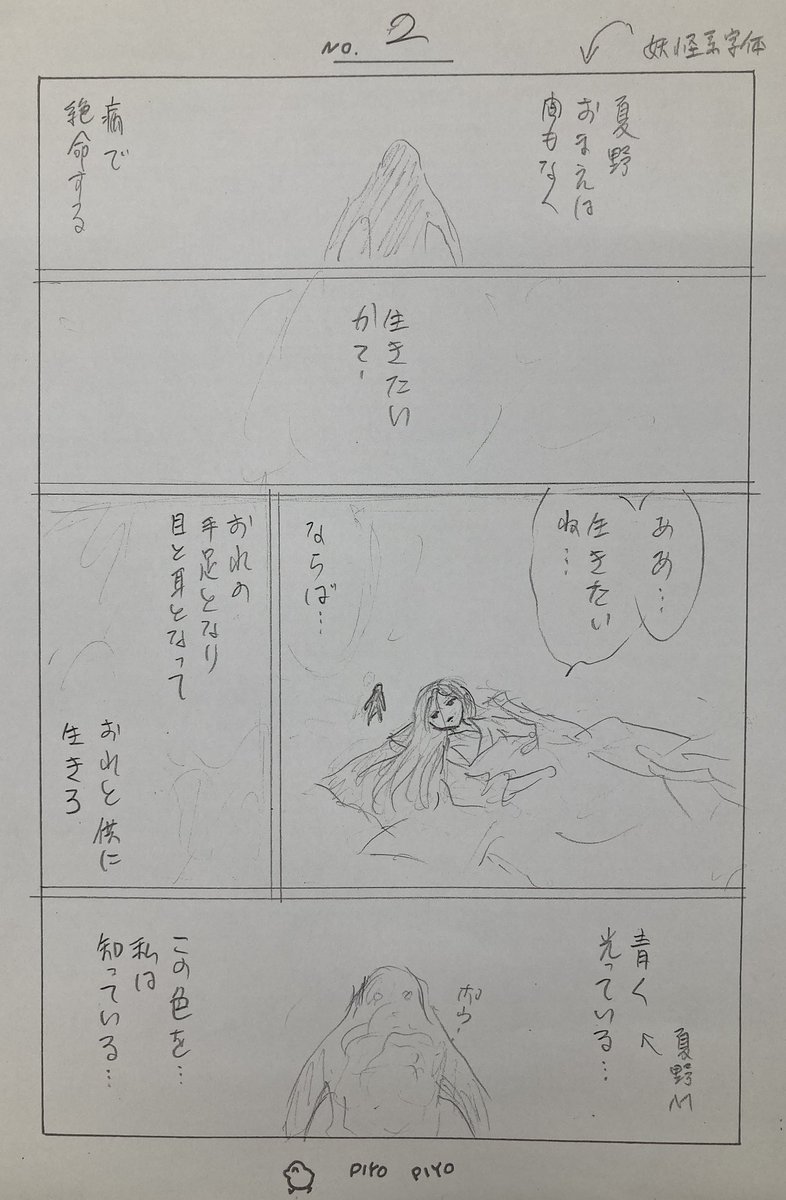 NO. 2
妖怪系字体
夏野
おまえは
間もなく
病で
絶命する
生きたい
かて、
ああ…
生きたい
ね…
ならば…
おれの
手足となり
目と耳となって
おれと供に
生きろ
青く
光っている…
夏野M
ホウ…
この色を…
私は
知っている…
PIYO PIYO